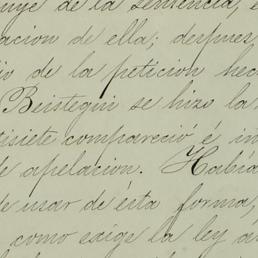 uye de la sentencia, e
acion de ella; despues
jo de la peticion hec
Beistegui se hizo la
tisiete compareció é in
de apelacion. Había
de usar de ésta forma,
como exige la ley a